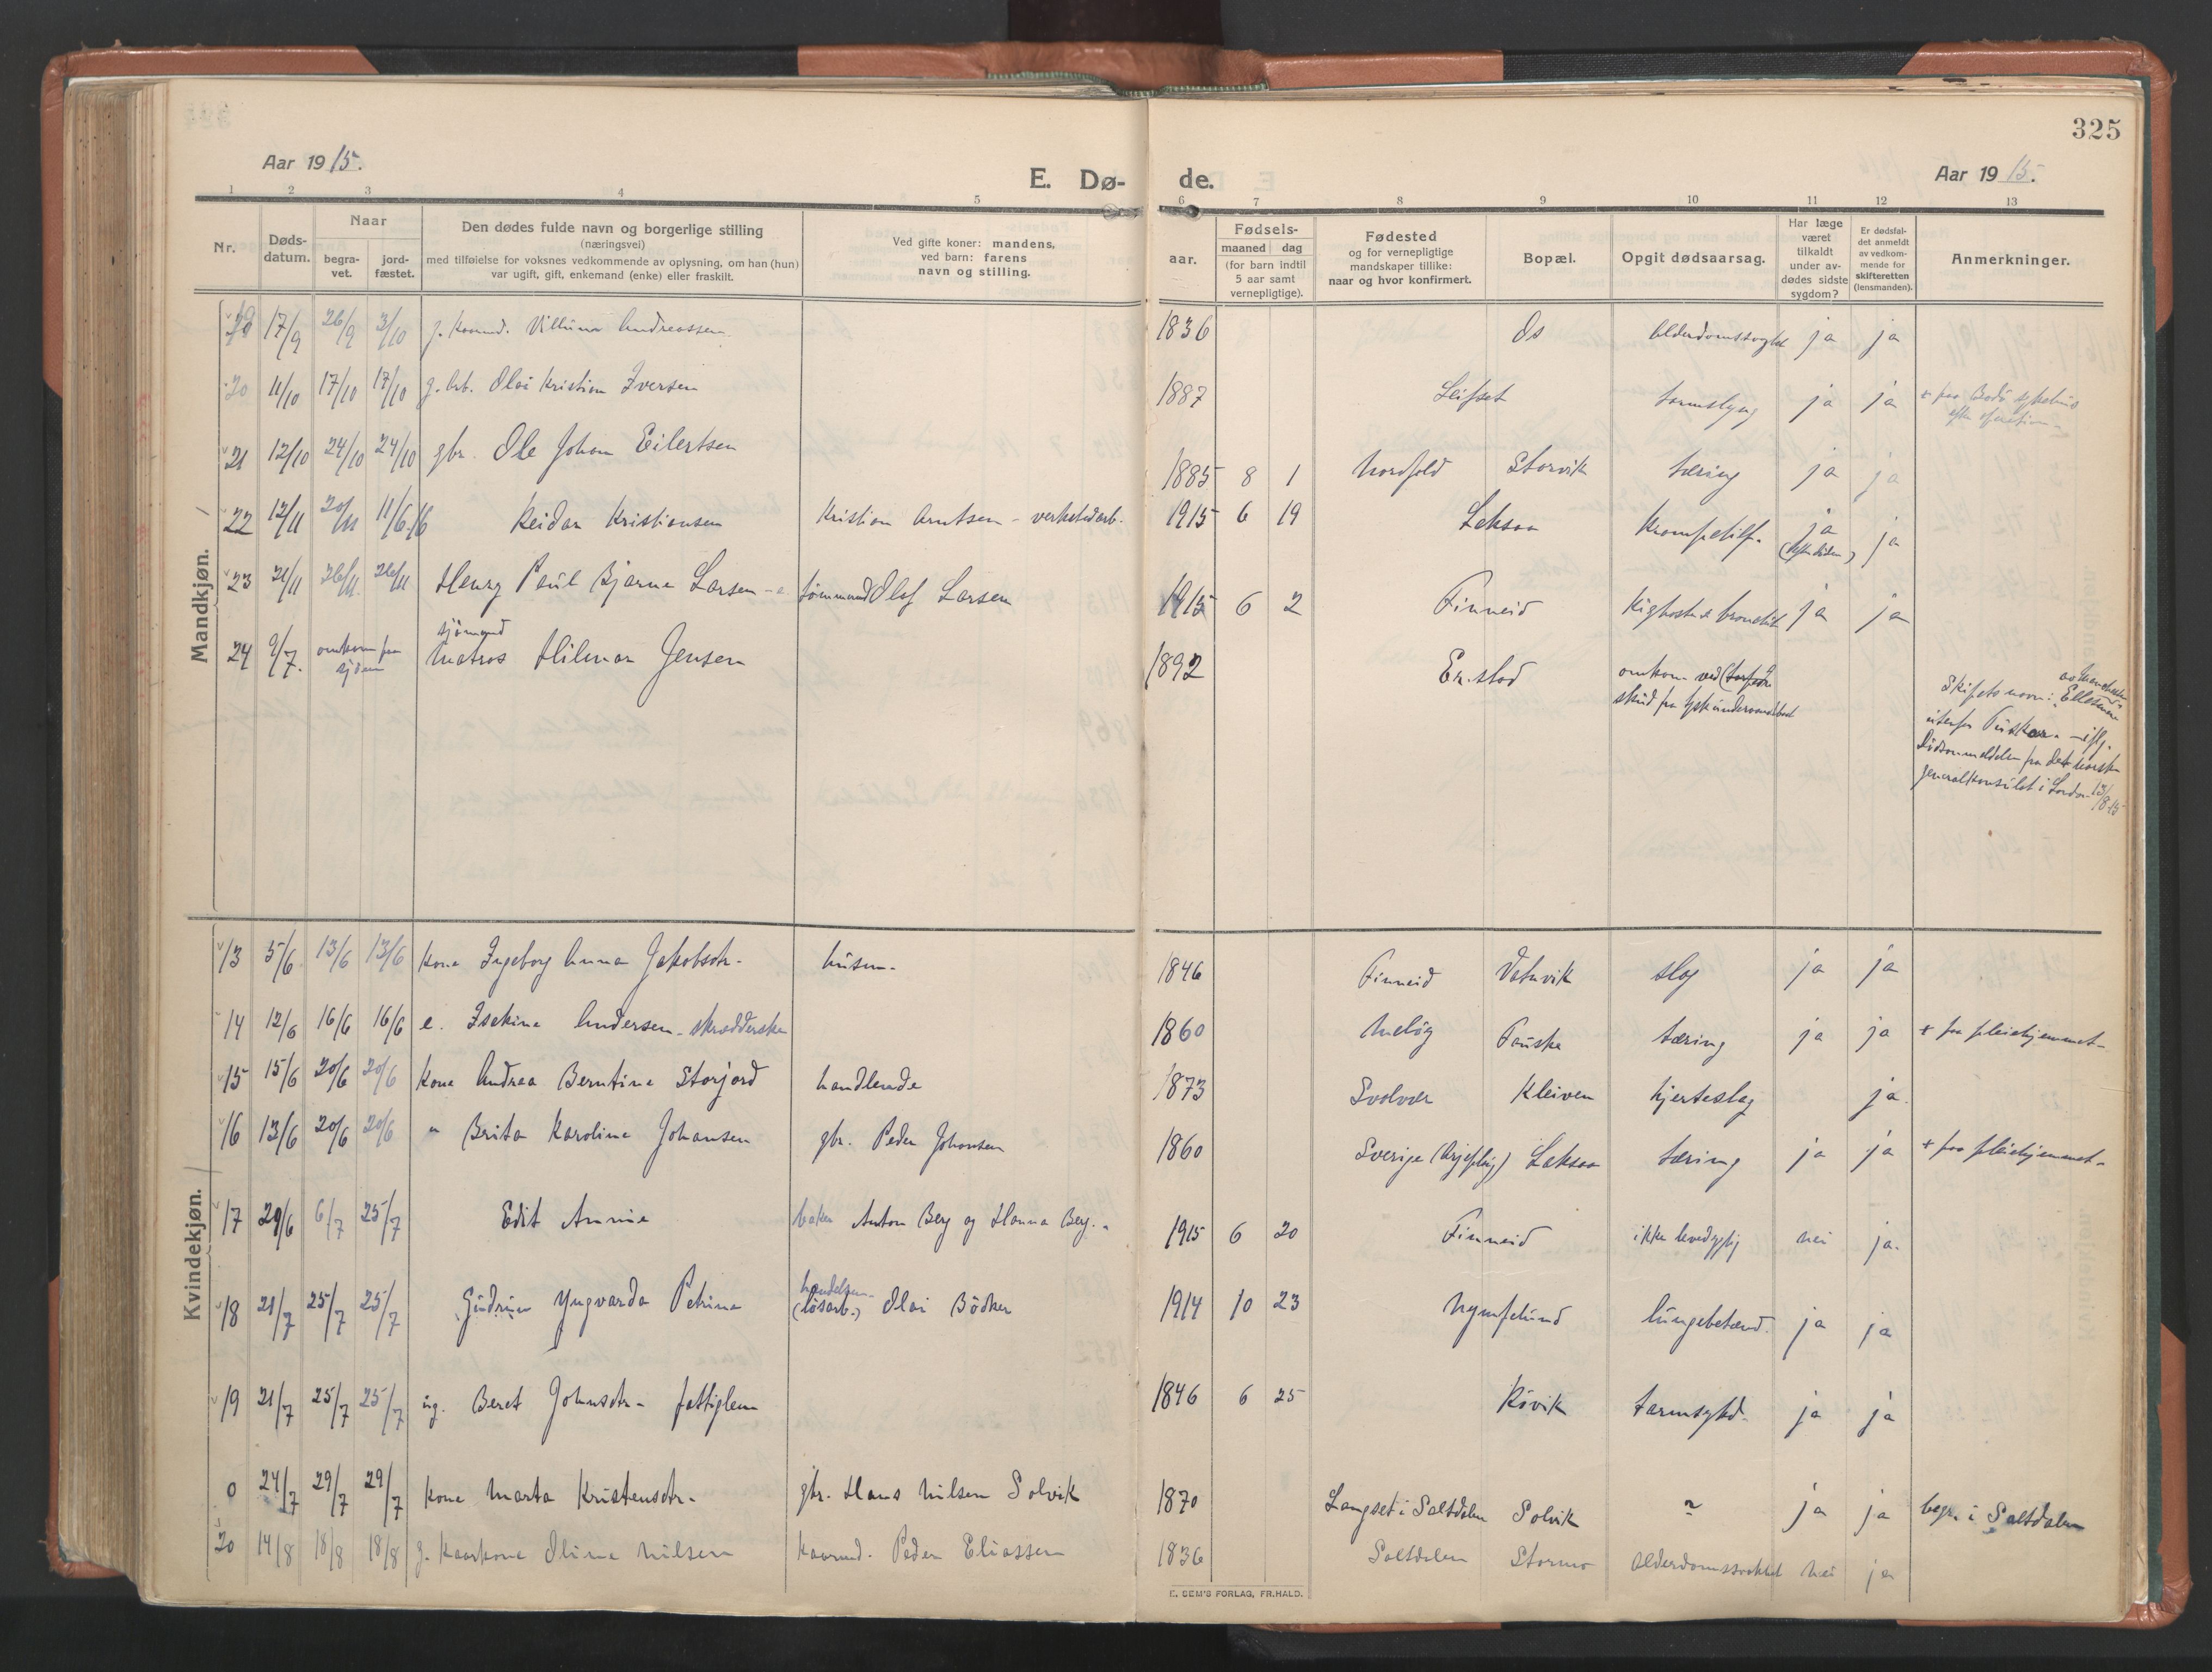 325
Aar 1915.
E. Dø- de.
Aar 1915.
1 2 3 4 5 6 7 8 9 10 11 12 13
Nr.
Døds-
datum.
Naar
begra-
vet.
jord-
fæstet.
Den dødes fulde navn og borgerlige stilling
(næringsvei)
med tilføielse for voksnes vedkommende av oplysning, om han (hun)
var ugift, gift, enkemand (enke) eller fraskilt.
Ved gifte koner: mandens,
ved barn: farens
navn og stilling.
aar.
Fødsels-
maaned dag
(for barn indtil
5 aar samt
vernepligtige).
Fødested
og for vernepligtige
mandskaper tillike:
naar og hvor konfirmert.
Bopæl.
Opgit dødsaarsag.
Har læge
været
tilkaldt
under av-
dødes sidste
sygdom?
Er dødsfal-
det anmeldt
av vedkom-
mende for
skifteretten
(lensmanden).
Anmerkninger.
Mandkjøn.
17/9 26/9 3/10 g. kaarmd. Andreassen 1836 Os ja ja
20 11/10 17/10 17/10 g. arb. Olai Kristian Iversen 1887 Leifset ja ja + paa Bodø sykehus
21 12/10 24/10 24/10 gbr. Ole Johan Eilertsen 1885 8 1 Nordfold Storvik tæring ja ja
22 12/11 20/11 11/6 16 Reidar Kristiansen Kristian Arntsen - verkstedarb. 1915 6 19 Laksaa Krampetilf. ja ja
23 21/11 26/11 26/11 Henry Paul Bjarne Larsen tømmermd Olaf Larsen 1915 6 2 Finneid Kighoste & bronchit ja ja
24 9/7. omkom paa
sjøen
sjømand
Matros Hilmar Jensen 1892 Er.stad omkom ved (torpedo
skud fra tysk undervandsbaat
Skipets navn: "Ellesmere"
av Manchester
utenfor - iflg.
dødsanmeldelse fra det norske
generalkonsulat i London 13/8 15
Kvindekjøn.
13 5/6 13/6 13/6 kone Ingeborg Anna Jakobsdtr. husm. 1846 Finneid Vatnvik slag ja ja
14 12/6 16/6 16/6 e. Isekine Andersen - skrædderske 1860 Meløy Fauske tæring ja ja + paa pleiehjemmet.
15 15/6 20/6 20/6 kone Andrea Berntine Storjord handlende 1873 Svolvær Kleiven hjerteslag ja.
16 13/6 20/6 20/6 " Brita Karoline Johansen gbr. Peder Johansen 1860 Sverige (Arjeplog) Laksaa tæring ja ja + paa pleiehjemmet.
17 29/6 6/7 25/7 Edit Annie baker Anton Berg og Hanna Berg. 1915 6 20 Finneid ikke levedygtig nei ja.
18 21/7 25/7 25/7 Gudrun Yngvarda Petrine handelsm.
(løsarb.) Olai Bødker 1914 10 23 Nymfelund lungebetænd. ja ja
19 21/7 25/7 25/7 ug. Beret Johnsdtr. fattiglem 1846 6 25 Røvik tarmsykd. ja ja
0 24/7 29/7 29/7 kone Marta Kristensdtr. gbr. Hans Nilsen Solvik 1870 Langset i Saltdalen Solvik ? ja ja begr. i Saltdalen
20 14/8 18/8 18/8 g. kaarkone Oline Nilsen kaarmd. Peder Eliassen 1836 Saltdalen Stormo Alderdomssvakhet nei ja
E. SEM'S FORLAG, FR.HALD.